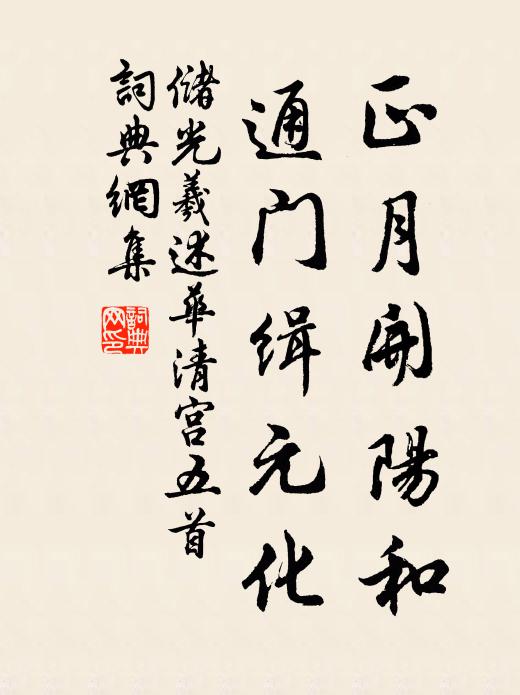 正月開陽和
通门缉元化
儲光羲述華清宮五首
詞典網集
詞典网印